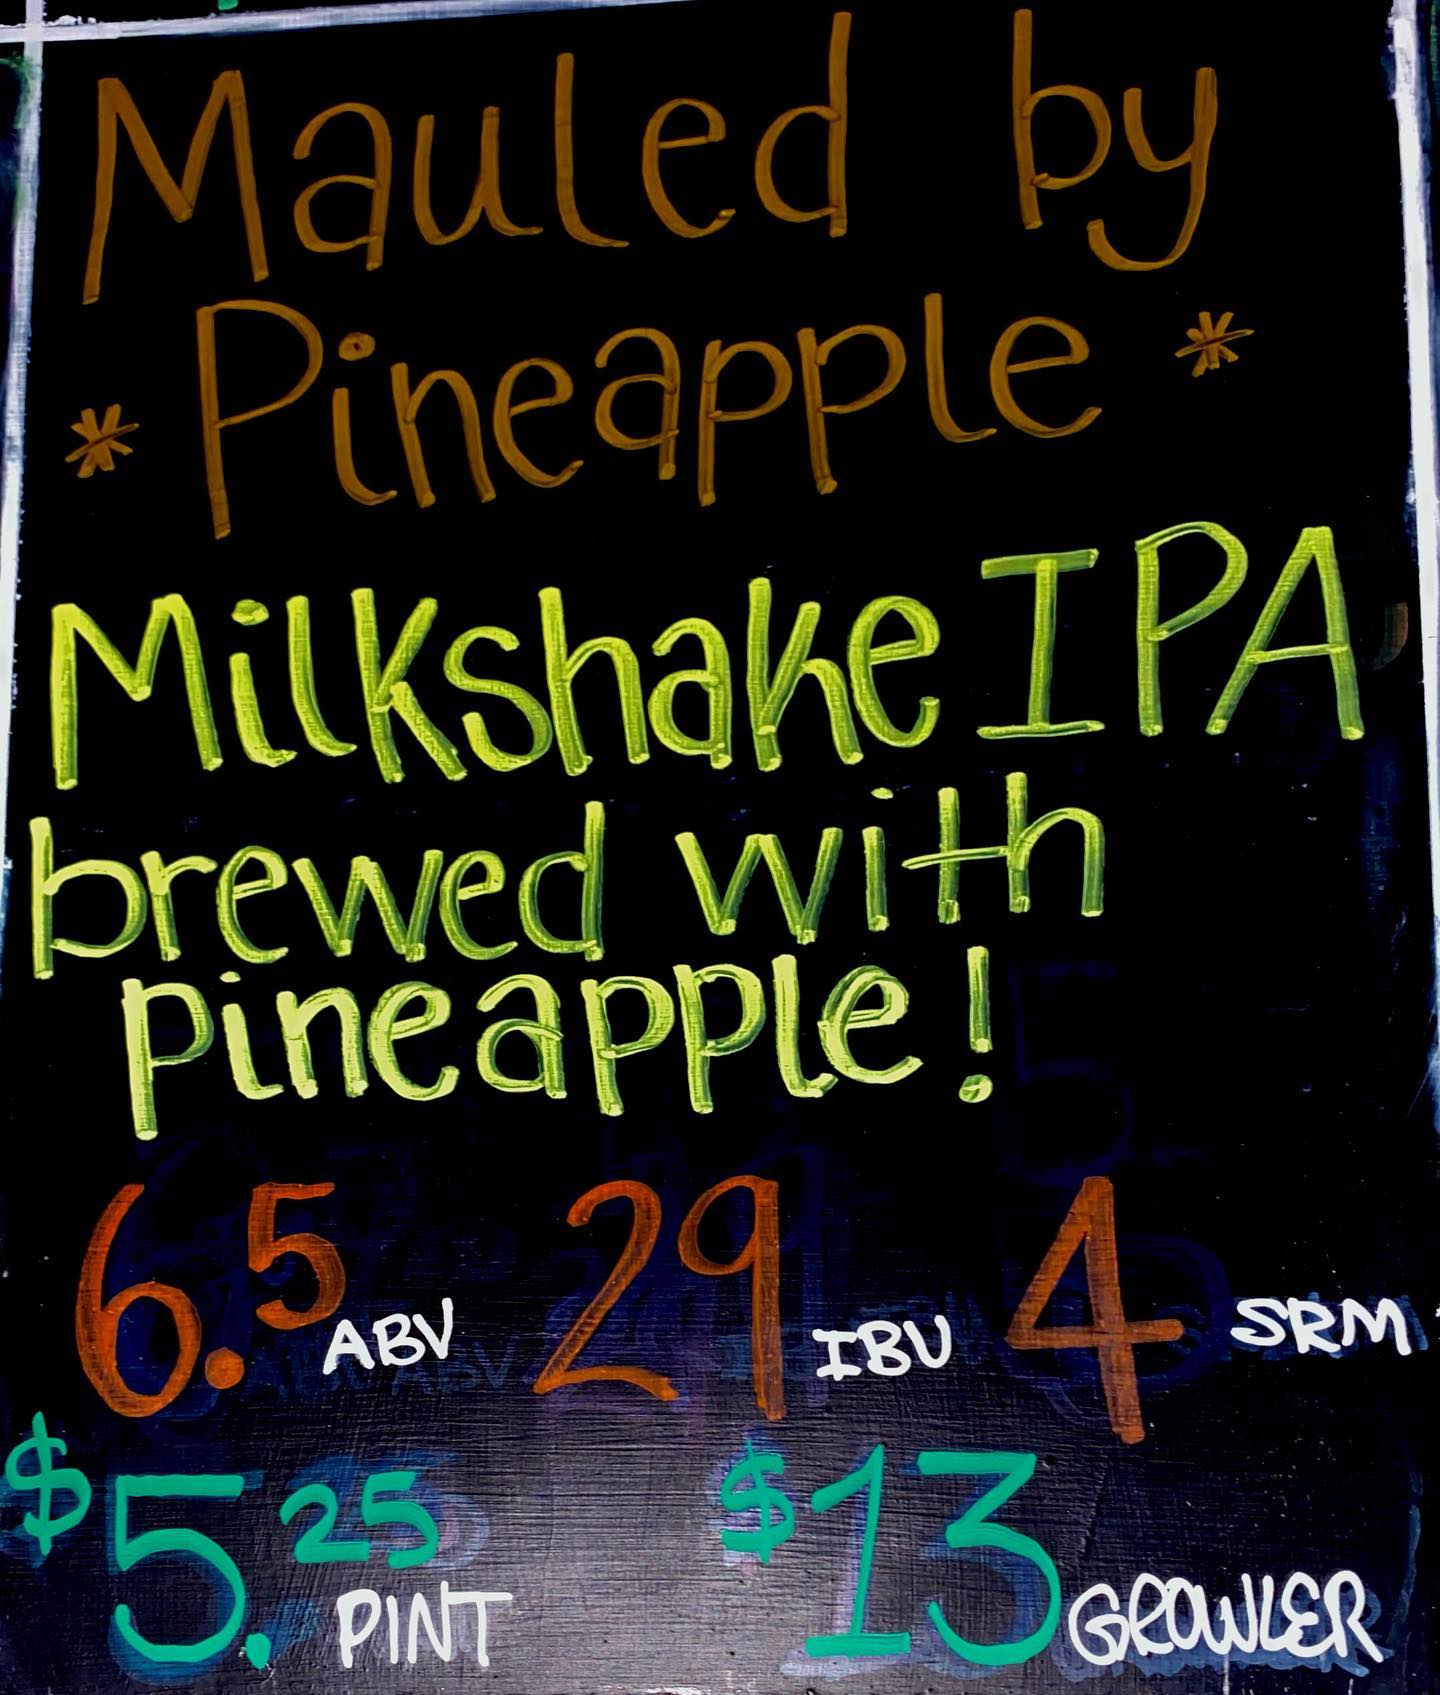 Mauled by
* Pineapple *
Milkshake IPA
brewed with
pineapple!
6.5 ABV 29 IBU 4 SRM
$5.25 PINT $13 GROWLER